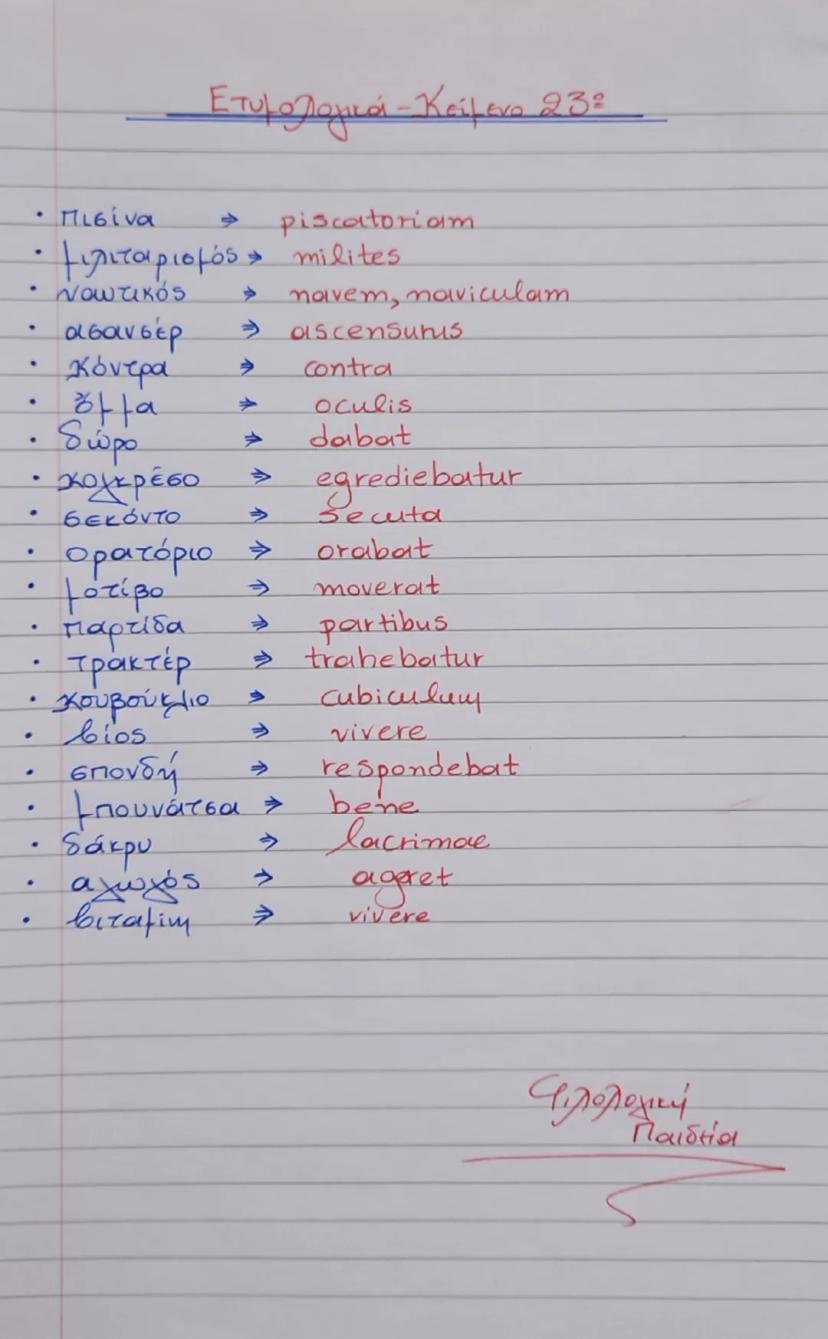 Ετυμολογικά - Κείμενο 23º
• πισίνα ⇒ piscatoriam
• μιλιταρισμός ⇒ milites
• ναυτικός ⇒ navem, naviculam
• ασανσέρ ⇒ ascensurus
• κόντρα ⇒ contra
• όμμα ⇒ oculis
• δώρο ⇒ dabat
• κογκρέσο ⇒ egrediebatur
• σεκόντο ⇒ secuta
• ορατόριο ⇒ orabat
• μοτίβο ⇒ moverat
• παρτίδα ⇒ partibus
• τρακτέρ ⇒ trahebatur
• κουβούκλιο ⇒ cubiculum
• βίος ⇒ vivere
• σπονδή ⇒ respondebat
• μπουνάτσα ⇒ bene
• δάκρυ ⇒ lacrimae
• αγωγός ⇒ ageret
• βιταμίνη ⇒ vivere
Φιλολογική
Παιδεία